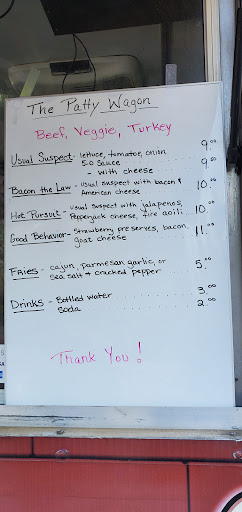 The Patty Wagon
Beef, Veggie, Turkey
Usual Suspect - lettuce, tomator, onion 9.00
5-0 Sauce
- with cheese 9.00
Bacon the Law - usual suspect with bacon &
American cheese 10.00
Hot Pursuit - Usual suspect with jalapenos,
Pepperjack cheese, fire aoili 10.00
Good Behavior - Strawberry preserves, bacon,
goat cheese 11.00
Fries - cajun, parmesan garlic, or
sea salt + cracked pepper 5.00
Drinks - Bottled water 3.00
Soda 2.00
Thank You!